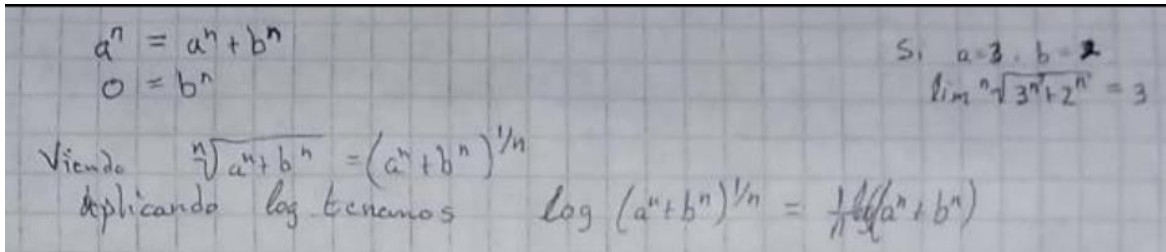 aⁿ = aⁿ + bⁿ
0 = bⁿ
Si a=3, b=2
lim ⁿ√(3ⁿ+2ⁿ) = 3
Viendo ⁿ√(aⁿ+bⁿ) = (aⁿ+bⁿ)^1/n
Aplicando log tenemos log (aⁿ+bⁿ)^1/n = 1/n log(aⁿ+bⁿ)